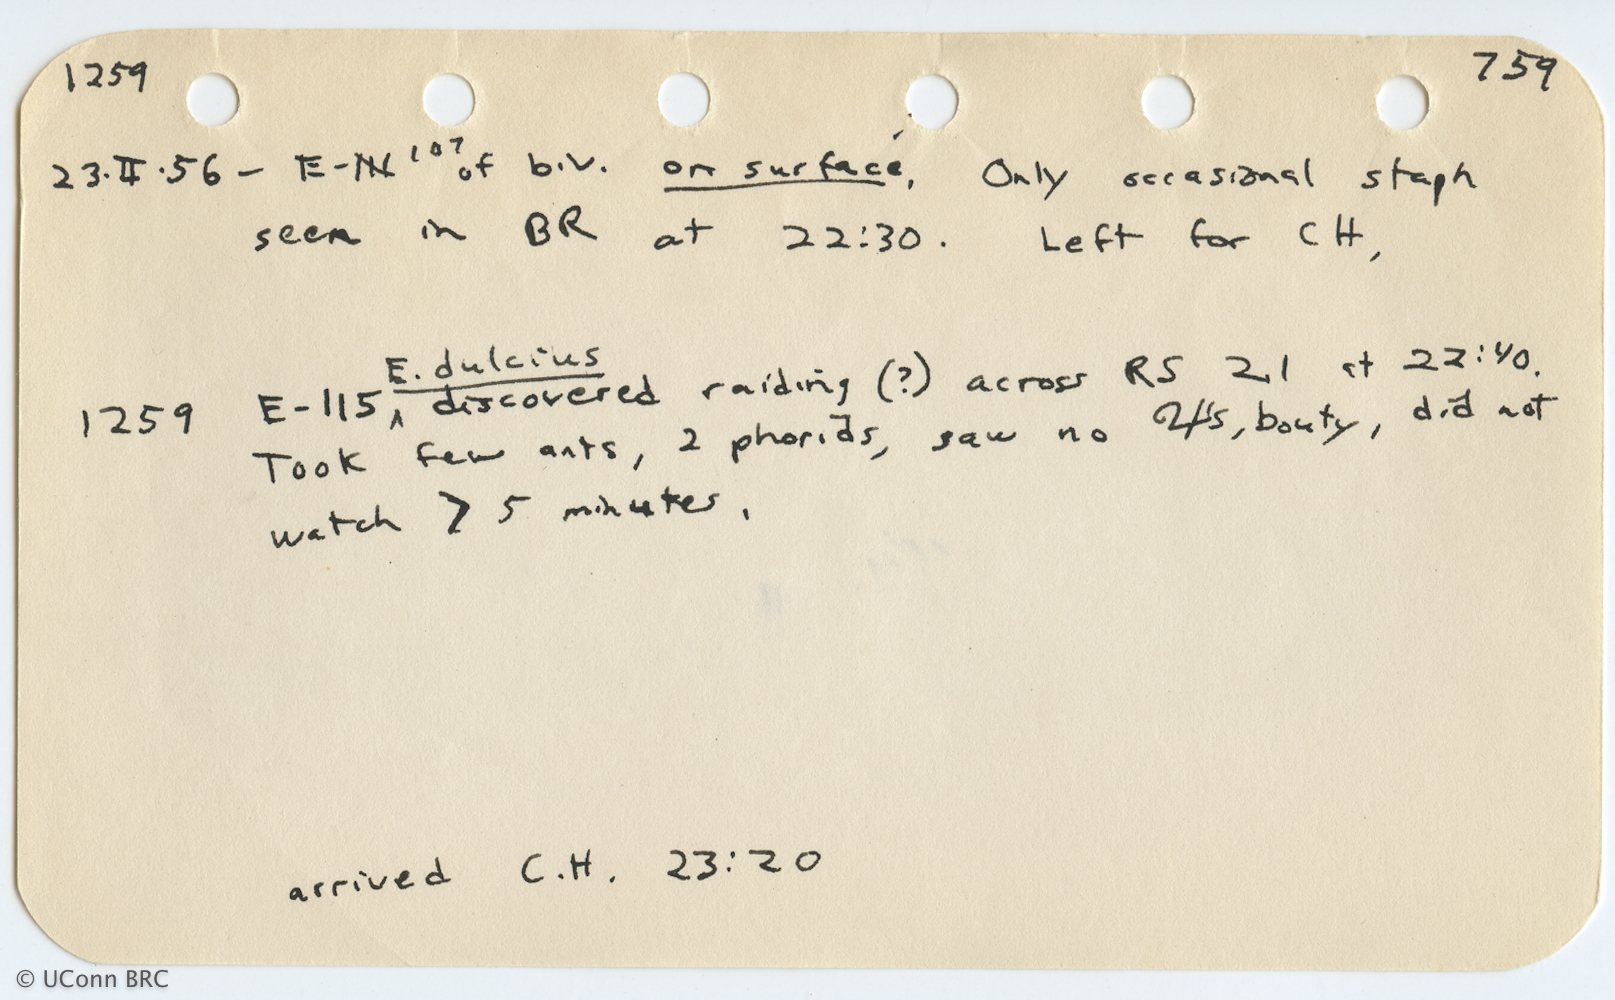 1259 759
23.II.56 - E- 107 of biv. on surface, Only occasional staph
seen in BR at 22:30. Left for CH,
E. dulcius
1259 E-115, discovered raiding (?) across RS 21 at 22:40.
Took few ants, 2 phorids, saw no bouty, did not
watch > 5 minutes.
arrived C.H. 23:20
© UConn BRC